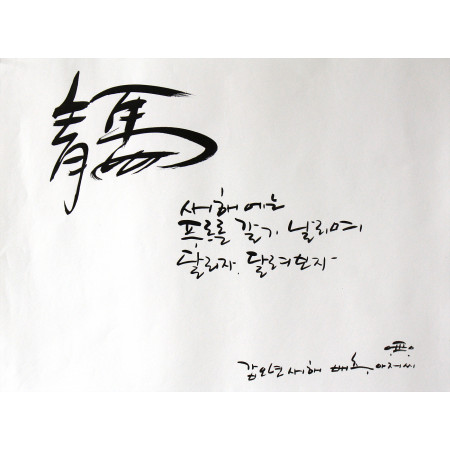 靑馬
새해에는
푸르른 갈기 날리며
달리자. 달려보자
갑오년 새해 아저씨